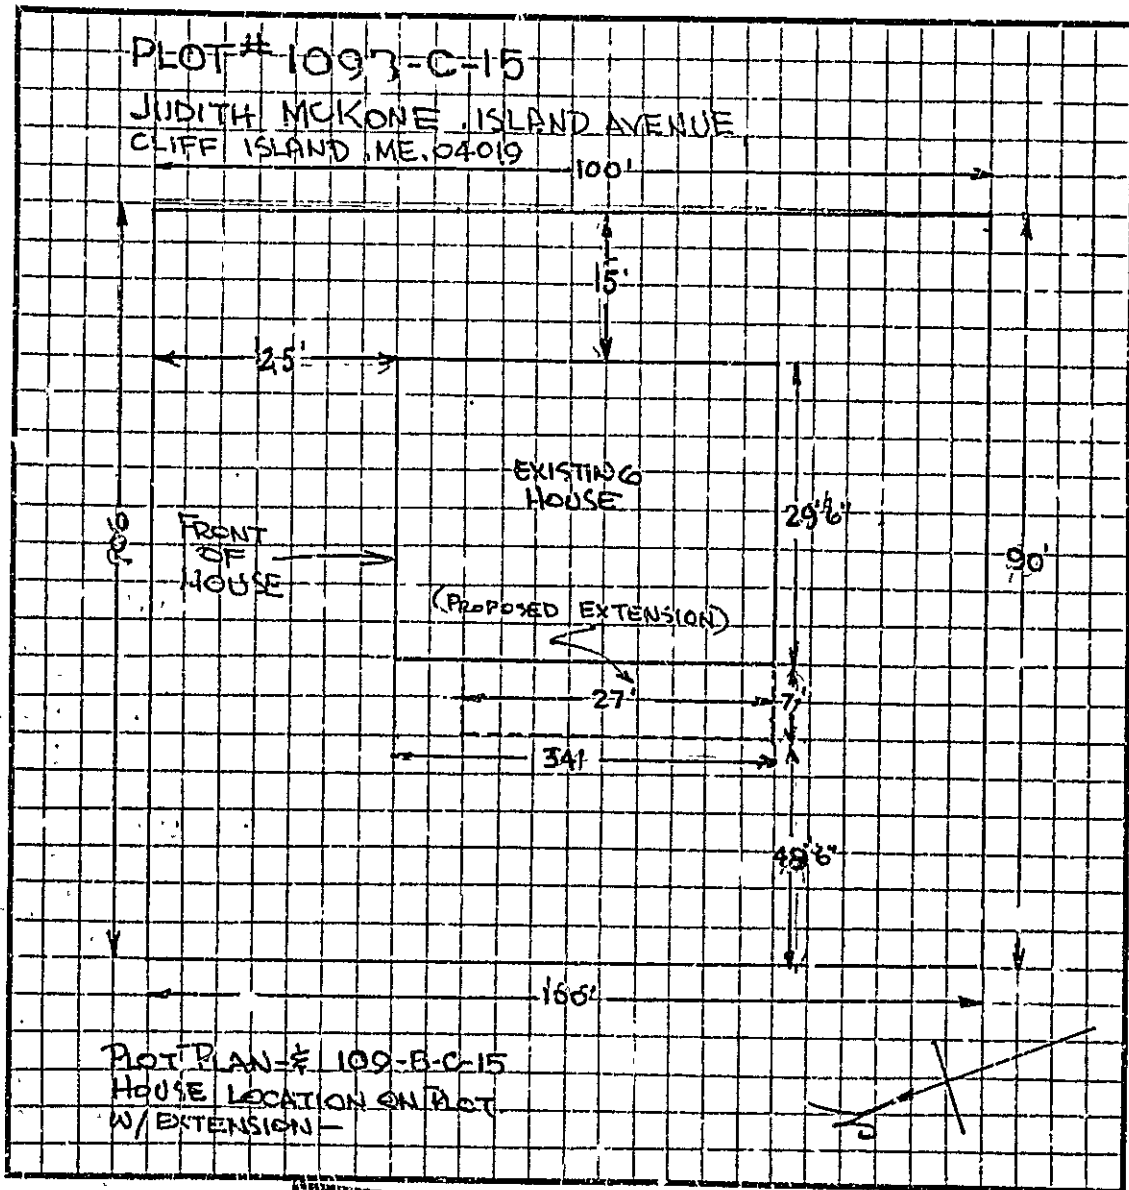 PLOT # 109
JUDITH MCKONE . ISLAND AVENUE
CLIFF ISLAND . ME. 04019
100'
15'
25'
EXISTING
HOUSE
29'6"
90'
FRONT
OF
HOUSE
90'
(PROPOSED EXTENSION)
27'
7'
34'
48'6"
PLOT PLAN-# 109-B-C-15
HOUSE LOCATION ON PLOT
W/ EXTENSION -